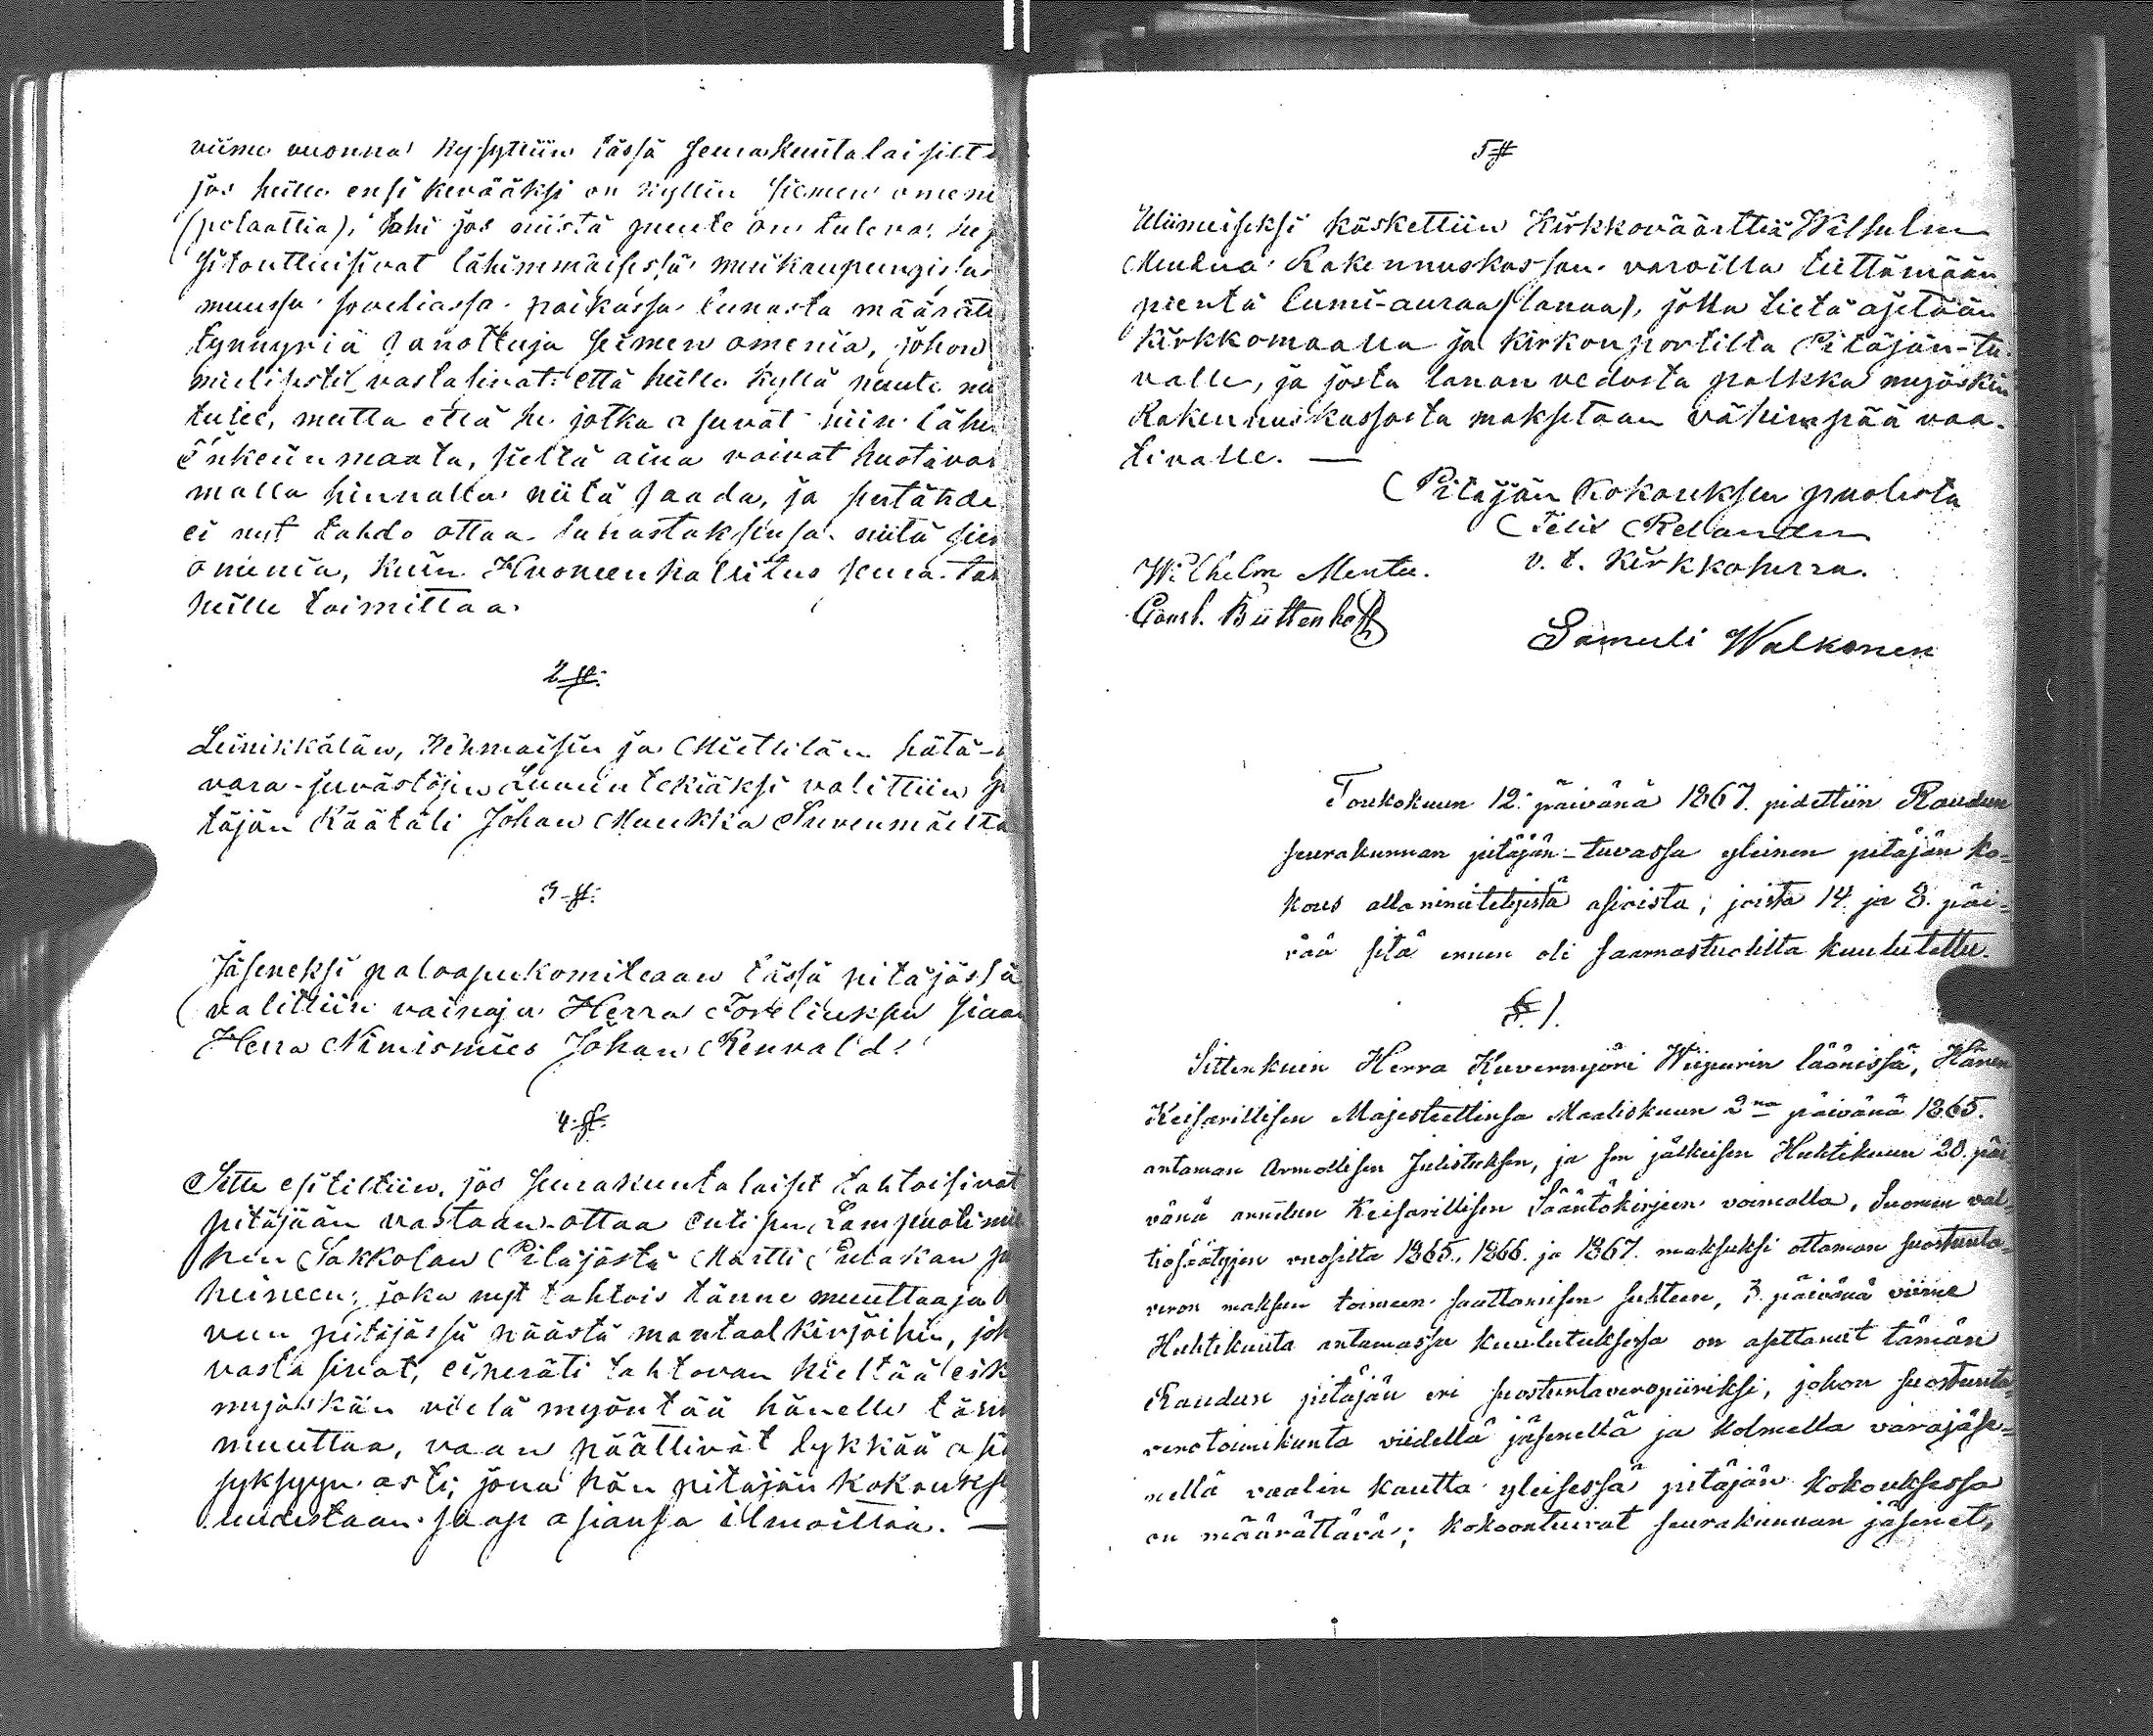 viime vuonna kysyttiin tässä seurakuntalaisilt
jos heille ensi kevääksi on kyllin siemen omeni
(potaattia), tahi jos niistä puute on tuleva, he
sitoutteisivat lähimmäisessä merikaupungissa
muussa soveliassa paikassa lunasta määrät
tynnyriä sanottuja siemen omenia, johon
mielisesti vastasivat: että heille kyllä puute
tulee, mutta että he jotka asuvat niin lähe
Inkeiinmaata, sieltä aina voivat huoktavam
malla hinnalla niitä saada, ja sentähde
ei nyt tahdo ottaa lunastaksensa niitä siem
omenia, kuin Huoneenhallitus seura
heille toimittaa.
2 §:
Leinikkälän, Kehmaisin ja Miettilän hätä-
vara-juvästöjen Luuuntekiäksi valittiin
täjän Räätäli Johan Muukka Suvenmäeltä
3 §:
Jäseneksi paloapukomiteaan tässä pitäjässä
valittiin vainaja Herra Foreliuksen siaan
Herra Nimismies Johan Renvald.
4 §:
Sitte esiteltiin, jos seurakuntalaiset tahtoisivat
pitäjään vastaan-ottaa entisen Lampuoti
hen Sakkolan Pitäjästä Martti Putakan
heineen, joka nyt tahtois tänne muuttaa ja
veen pitäjässä päästä mantaalkirjoihin, joh
vastasivat, ei peräti tahtovan kieltää eik
myöskän vielä myöntää hänelle tän
muuttaa, vaan päättivät lykkää asi
syksyyn asti; jona hän pitäjän kokoukse
uudestaan saap asiansa ilmoittaa. —
5 §
Wiimeiseksi käskettiin Kirkkoväärttiä Wilhelm
Mentua Rakennuskassan varoilla teettämään
pientä lumi-auraa (lanaa), jolla tietä ajetaan
Kirkkomaalla ja kirkon portilta Pitäjän-tu-
valle, ja josta lanan vedosta palkka myöskin
Rakennuskassasta maksetaan vähimpää vaa-
tivalle. —
Pitäjän Kokouksen puolesta
Felix Relander
v. t. Kirkkoherra.
Wilhelm Mentu.
Const. Büttenhoff
Samuli Walkonen
Toukokuun 12. päivänä 1867. pidettiin Raudun
seurakunnan pitäjän-tuvassa yleinen pitäjän ko-
kous alla nimitetyistä asioista; joista 14. ja 8. päi-
vää sitä ennen oli saarnastuolilta kuulutettu.
§. 1.
Sittenkuin Herra Kuvernyöri Wiipurin läänissä, Hänen
Keisarillisen Majesteettinsa Maaliskuun 2na päivänä 1865.
antaman Armollisen Julistuksen, ja sen jälkeisen Huhtikuun 20. päi
vänä annetun Keisarillisen Sääntökirjeen voimalla, Suomen val-
tiosäätyjen vuosilta 1865., 1866. ja 1867. maksuksi ottaman suostunta-
veron maksun toimeen saattamisen suhteen, 3. päivänä viime
Huhtikuuta antamassa kuulutuksessa on asettanut tämän
Raudun pitäjän eri suostuntaveropiiriksi, johon suostunta-
verotoimikunta viidellä jäsenellä ja kolmella varajäse-
nellä vaalin kautta yleisessä pitäjän kokouksessa
on määrättävä; kokoontuivat seurakunnan jäsenet,